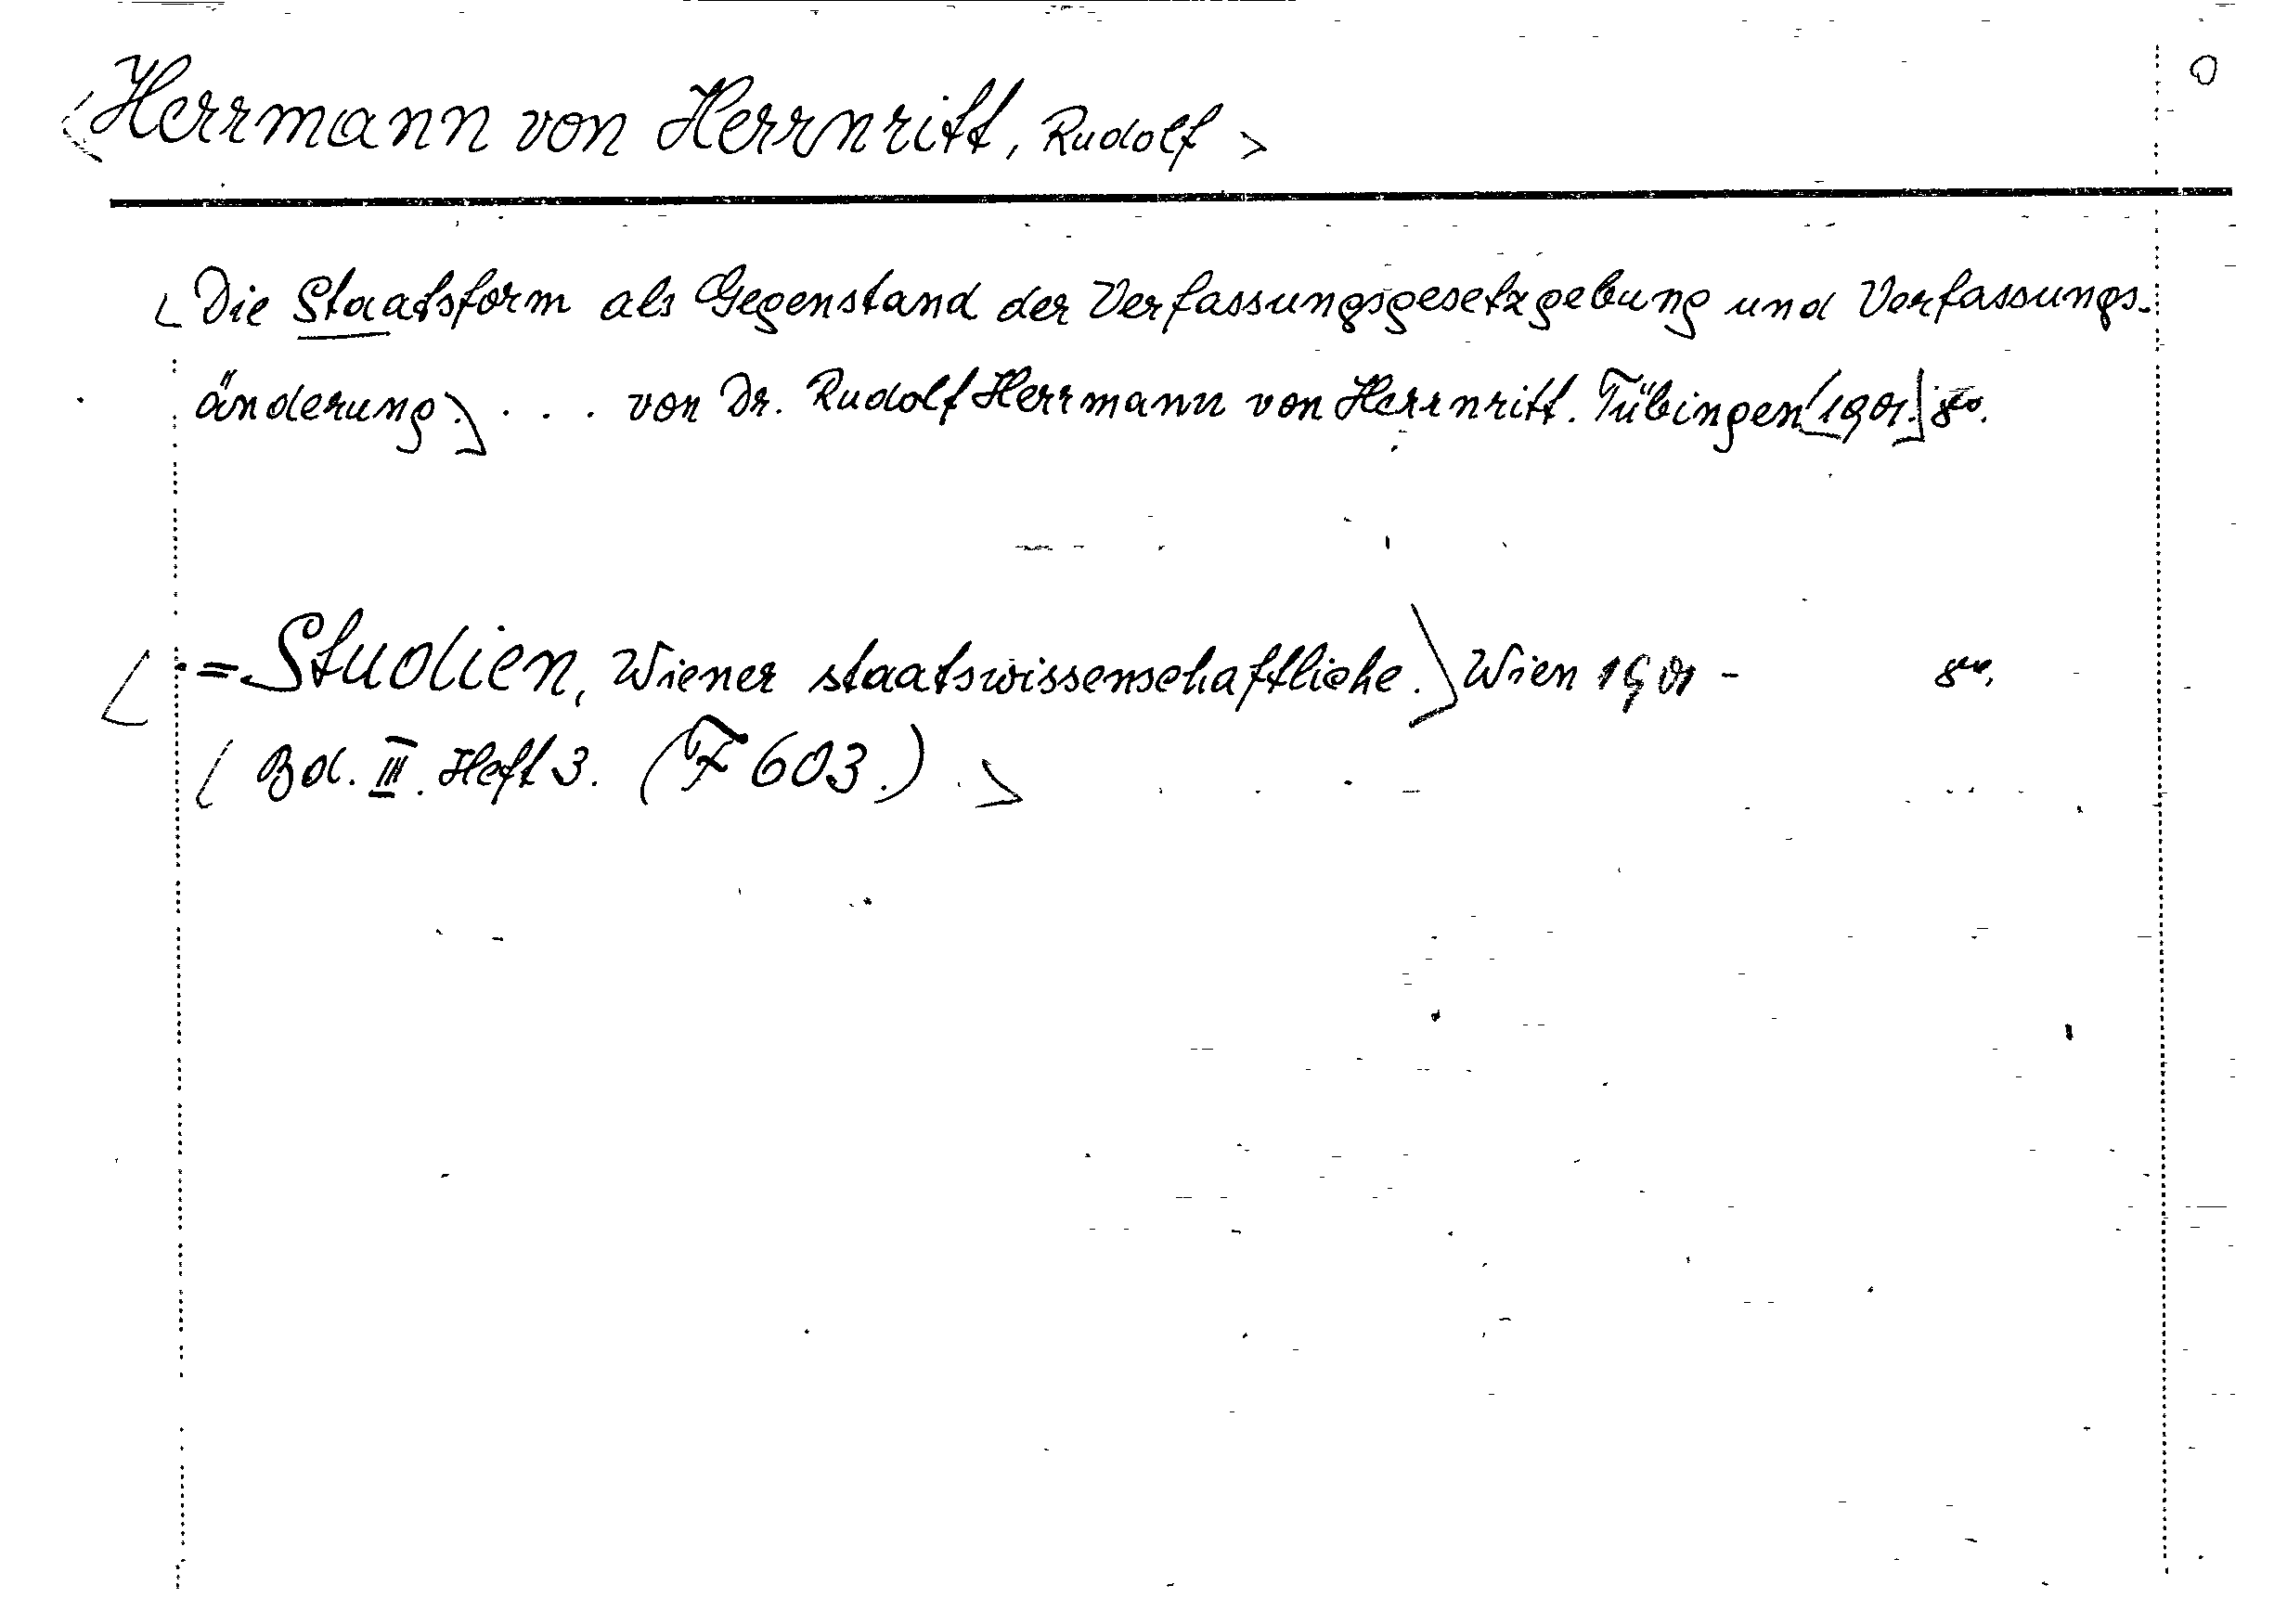 <Herrmann von Herrnritt, Rudolf>
[Die Staatsform als Gegenstand der Verfassungsgesetzgebung und Verfassungs-
änderung.] . . . von Dr. Rudolf Herrmann von Herrnritt. Tübingen [1901.] 8o.
[= Studien, Wiener staatswissenschaftliche.] Wien 1901 - 8o.
[Bd. III. Heft 3. (F 603.).>